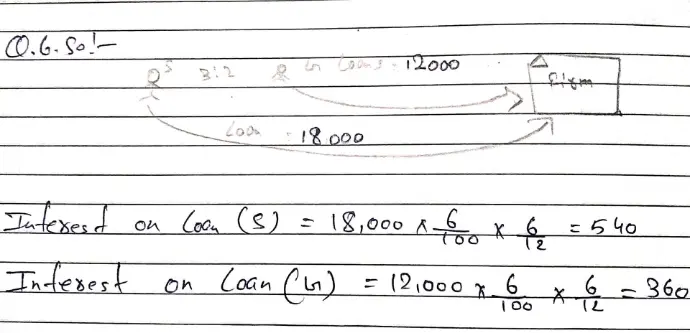 Q.6. Sol:-
S 3:2 G Loan = 12000
Firm
Loan = 18,000
Interest on Loan (S) = 18,000 × 6/100 × 6/12 = 540
Interest on Loan (G) = 12,000 × 6/100 × 6/12 = 360